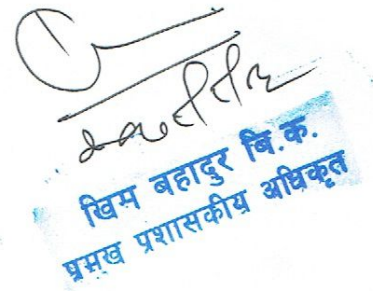 खिम बहादुर बि.क.
प्रमुख प्रशासकीय अधिकृत